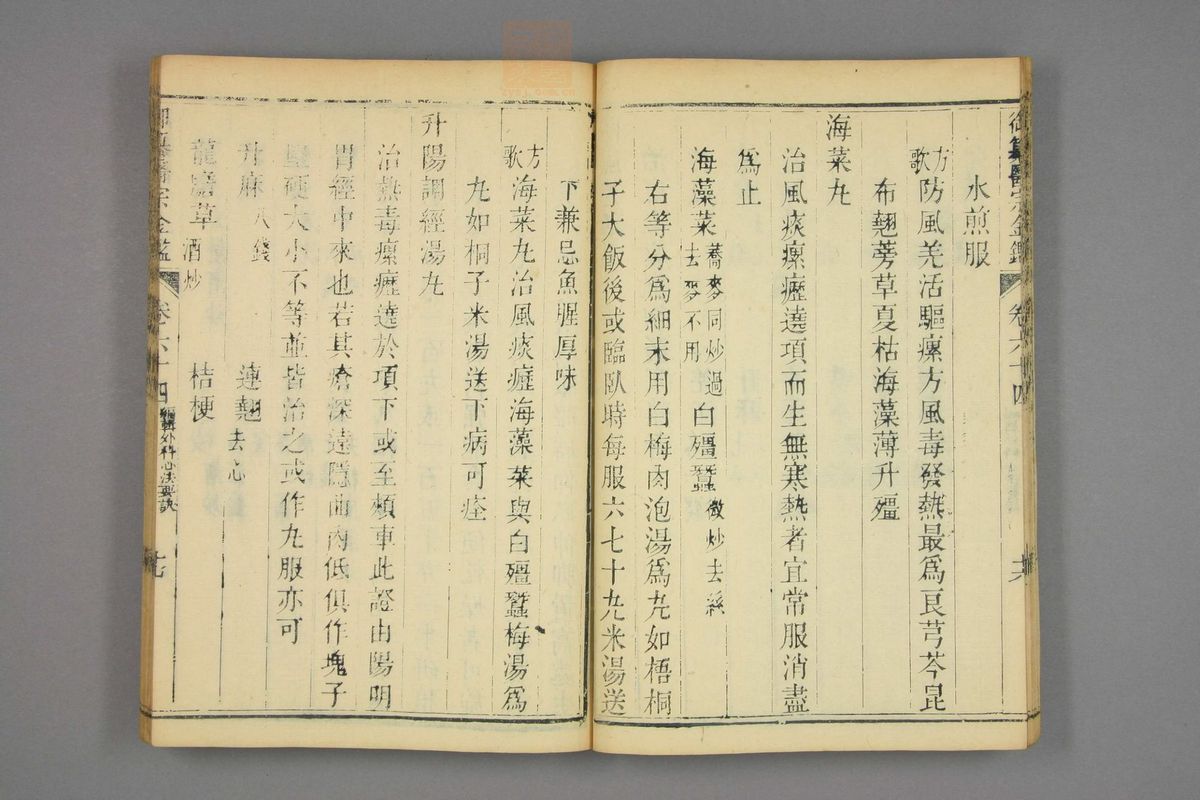 水煎服
方歌防風羌活驅瘰方風毒發熱最爲良芎芩昆
布翹蒡草夏枯海藻薄升殭
海菜丸
治風痰瘰癧遶項而生無寒熱者宜常服消盡
爲止
海藻菜蕎麥同炒過去麥不用白殭蠶微炒去絲
右等分爲細末用白梅肉泡湯爲丸如梧桐
子大飯後或臨臥時每服六七十丸米湯送
下兼忌魚腥厚味
方歌海菜丸治風痰癧海藻菜與白殭蠶梅湯爲
丸如桐子米湯送下病可痊
升陽調經湯丸
治熱毒瘰癧遶於項下或至頰車此證由陽明
胃經中來也若其瘡深遠隱曲肉低俱作塊子
堅硬大小不等並皆治之或作丸服亦可
升麻八錢 連翹去心
龍膽草酒炒 桔梗
御纂醫宗金鑑 卷六十四 編輯外科心法要訣 七